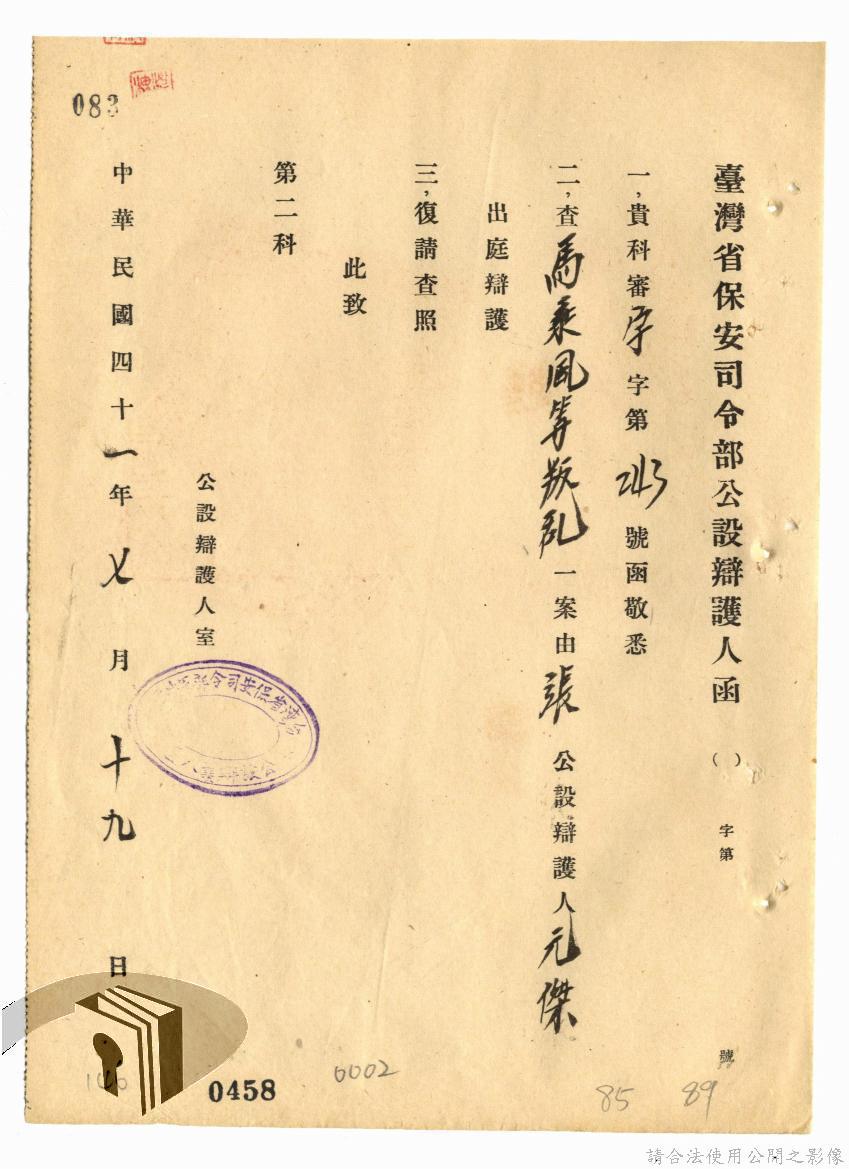 臺灣省保安司令部公設辯護人函 ( ) 字第 號
一,貴科審字字第243號函敬悉
二,查馬乘風等叛乱一案由張公設辯護人元傑
出庭辯護
三,復請查照
此致
第二科
公設辯護人室
中華民國四十一年七月十九日
083
0458
0002
85
89
請合法使用公開之影像